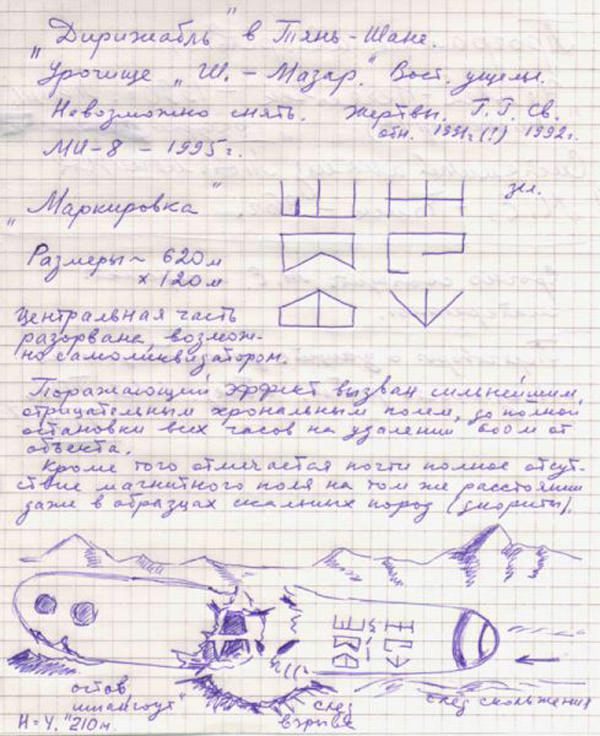 „Дирижабль" в Тянь-Шане.
Урочище „Ш.-Мазар." Вост. ущелье.
Невозможно снять. Жертвы. Г.Г. св.
отн. 1991(?) 1992г.
МИ-8 – 1995г.
„Маркировка"
Размеры ~ 620м
х 120м
Центральная часть
разорвана, возмож-
но самоликвизатором.
Поражающий эффект вызван сильнейшим,
отрицательным хрональным полем, до полной
остановки всех часов на удалении 600м от
объекта.
Кроме того отмечается почти полное отсут-
ствие магнитного поля на том же расстоянии
даже в образцах скальных пород (диориты).
остов
„шпангоут"
след
взрыва
след скольжения
Н = 4.210м.